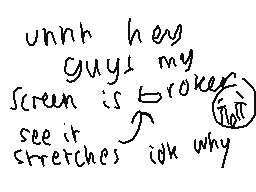 unnh hey
guys my
screen is broken
see it
stretches idk why